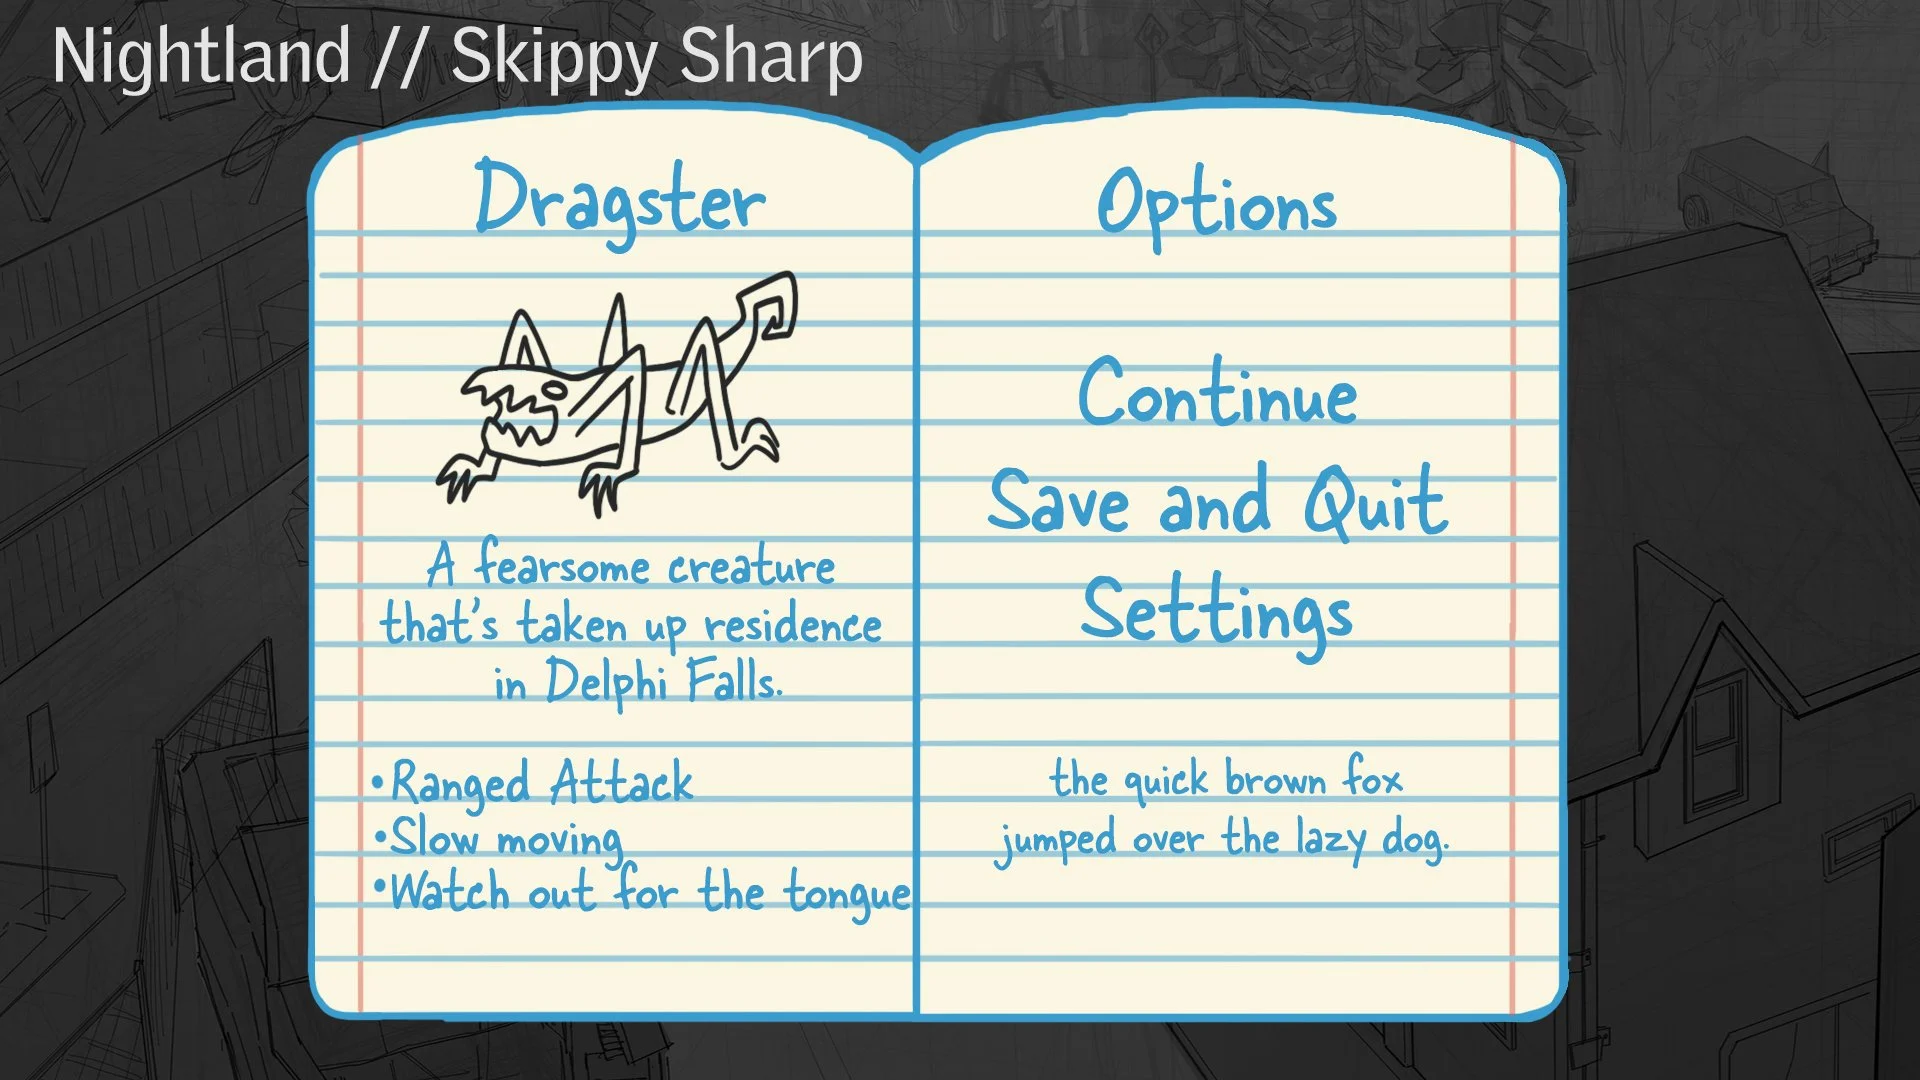 Nightland // Skippy Sharp
Dragster
A fearsome creature
that's taken up residence
in Delphi Falls.
•Ranged Attack
•Slow moving
•Watch out for the tongue
Options
Continue
Save and Quit
Settings
the quick brown fox
jumped over the lazy dog.